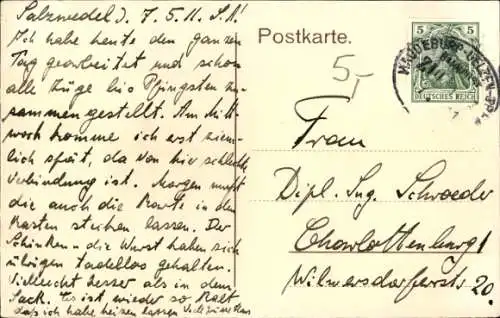 Salzwedel d. 7.5.11. S.A!
Ich habe heute den ganzen
Tag gearbeitet und schon
alle Züge bis Pfingsten zu-
sammengestellt. Am Mitt-
woch komme ich erst ziem-
lich spät, da von hier schlechte
Verbindung ist. Morgen mußt
die auch die Karte in den
Kasten stecken lassen. Der
Schinken - die Wurst haben sich
übrigens tadellos gehalten.
Vielleicht besser als in dem
Sack. Es ist wieder so kalt
daß ich habe heizen lassen
Postkarte.
5,-
5 5
DEUTSCHES REICH
MAGDEBURG-UELZEN
Frau
Dipl. Ing. Schroeder
Charlottenburg 1
Wilmersdorferstr 20.